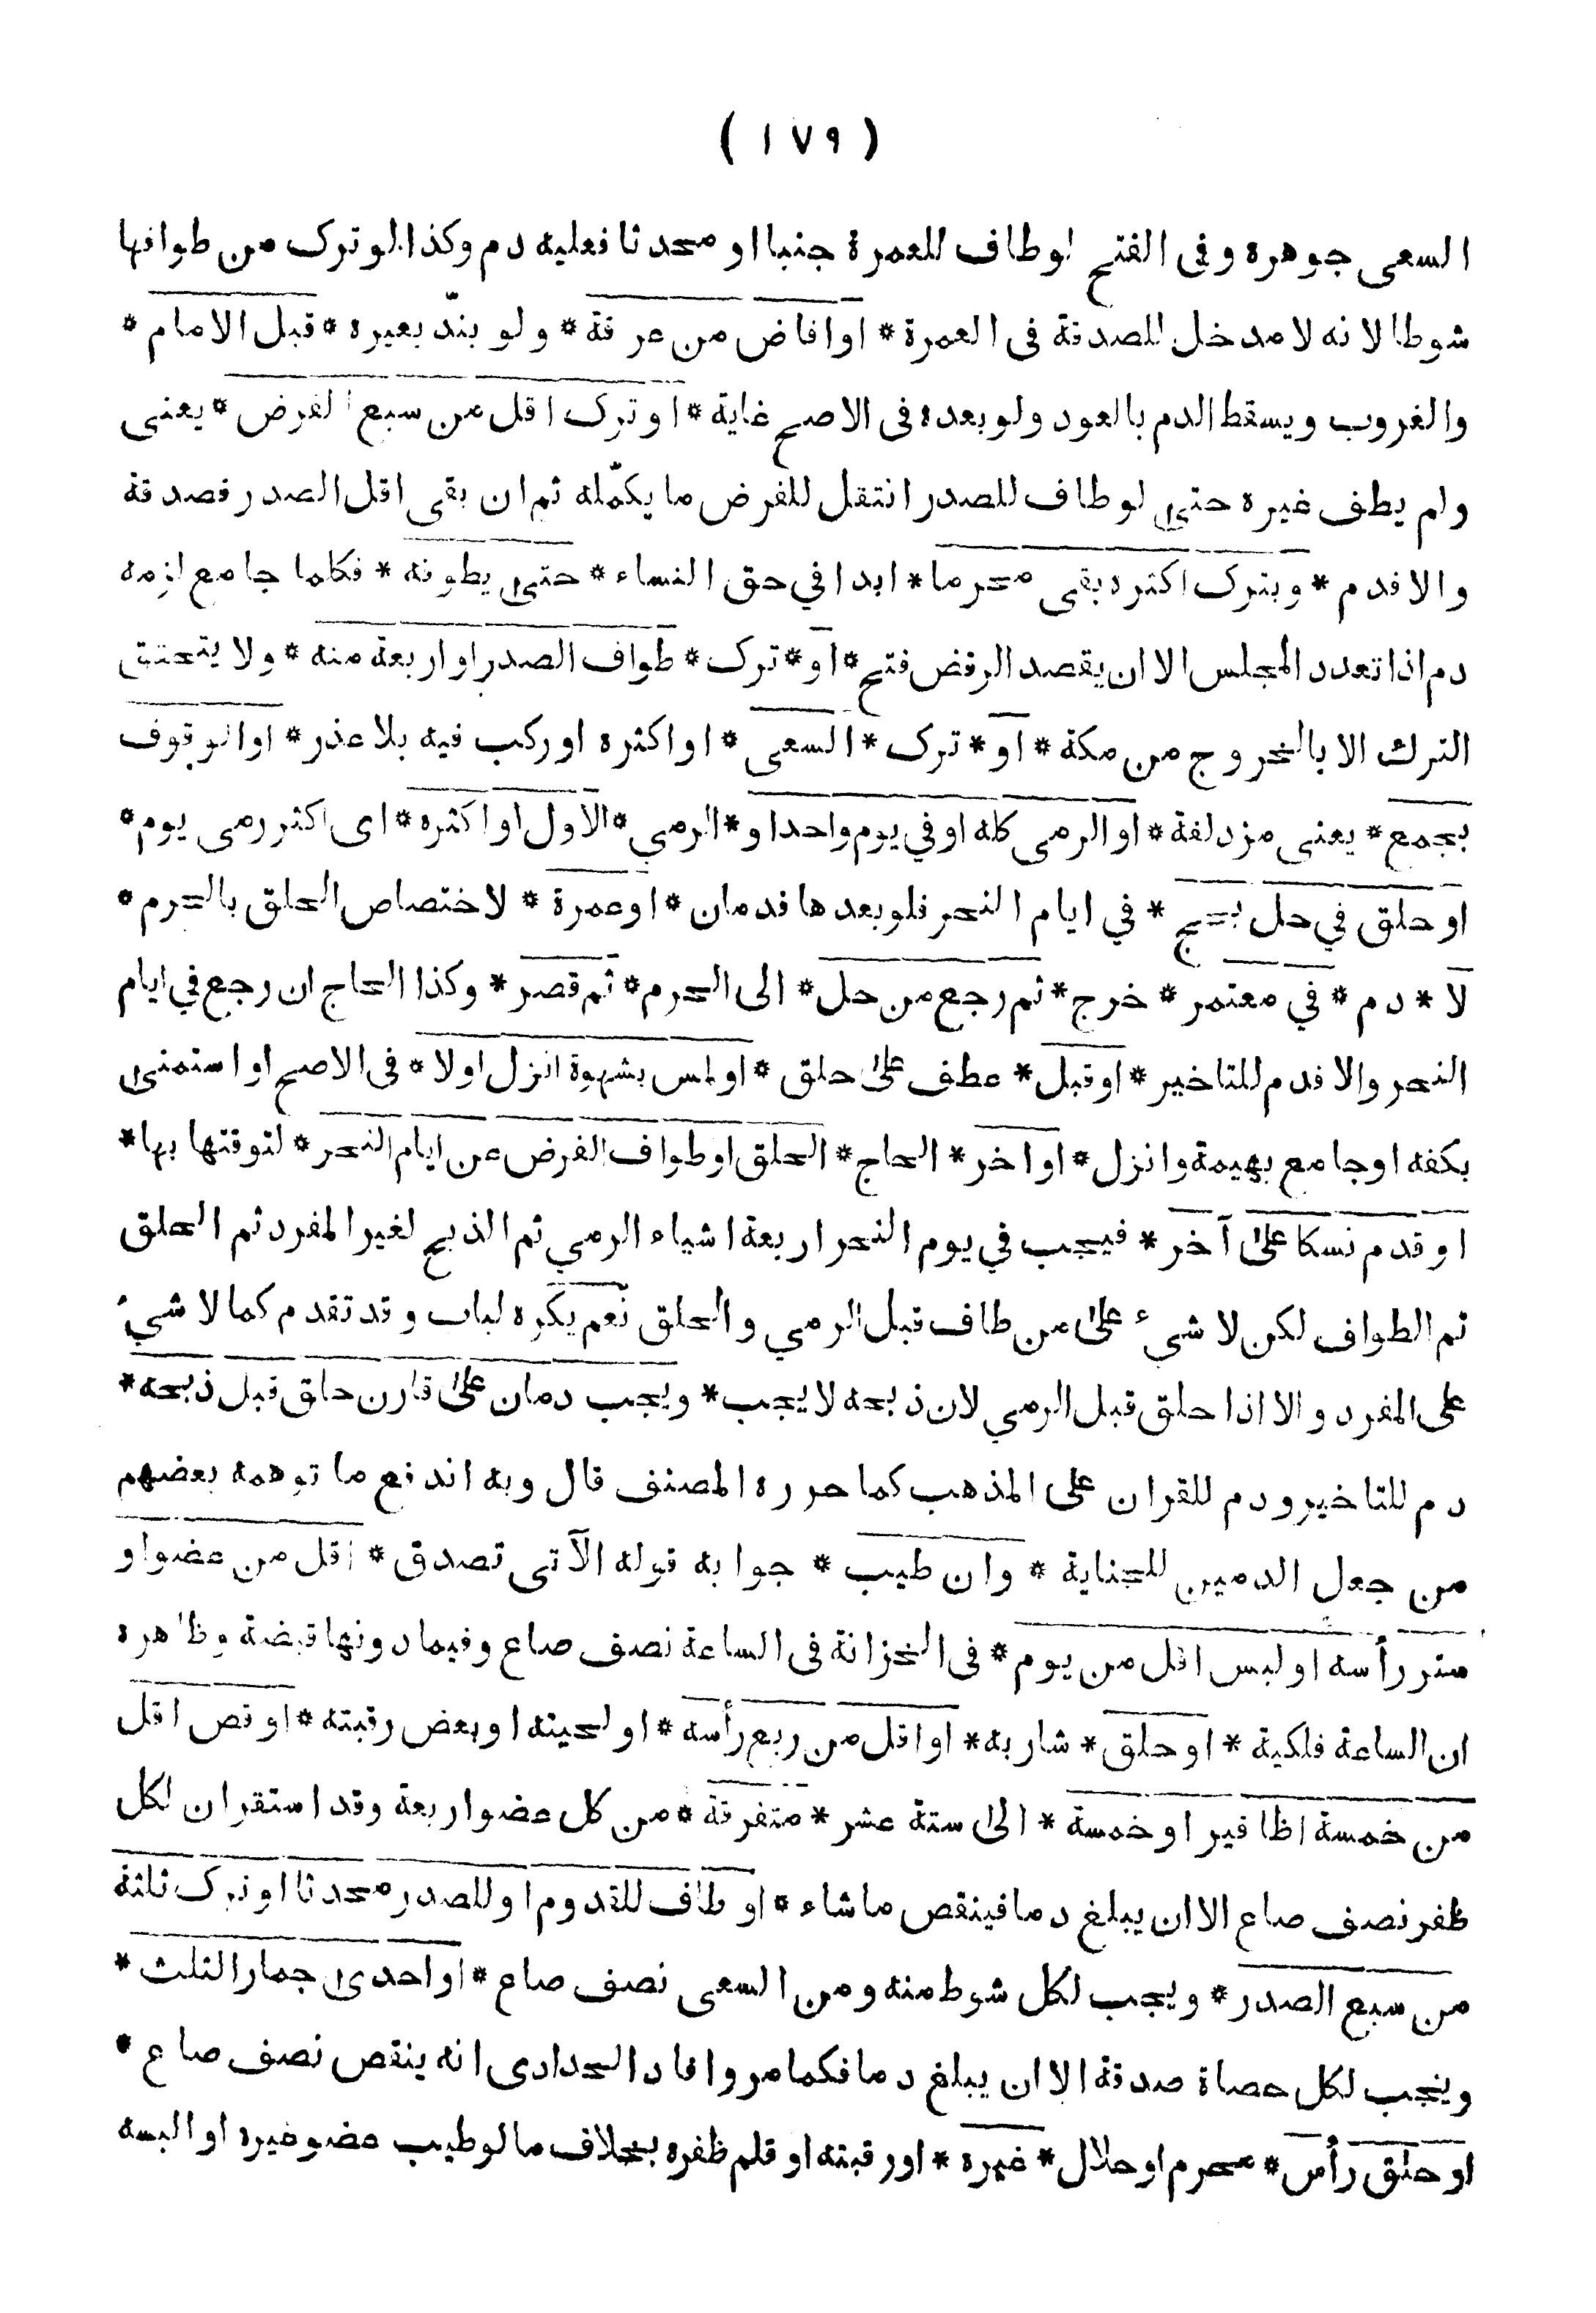 ( ١٧٩ )
السعى جوهره وفى الفتح لوطاف للعمرة جنبا او محدثا فعليه دم وكذا لوترك من طوافها
شوطا لانه لا مدخل للصدقة فى العمرة * او افاض من عرفة * ولو بندّ بعيره * قبل الامام *
والغروب ويسقط الدم بالعود ولو بعده فى الاصح غاية * او ترك اقل من سبع الفرض * يعنى
ولم يطف غيره حتى لو طاف للصدر انتقل للفرض ما يكمّله ثم ان بقى اقل الصدر فصدقة
والا فدم * وبترك اكثره بقى محرما * ابدا في حق النساء * حتى يطوفه * فكلما جامع لزمه
دم اذا تعدد المجلس الا ان يقصد الرفض فتح * او * ترك * طواف الصدر او اربعة منه * ولا يتحقق
الترك الا بالخروج من مكة * او * ترك * السعى * او اكثره او ركب فيه بلا عذر * او الوقوف
بجمع * يعنى مزدلفة * او الرمى كله او في يوم واحد او * الرمي * الاول او اكثره * اى اكثر رمى يوم *
او حلق في حل بحج * في ايام النحر فلو بعدها فدمان * او عمرة * لاختصاص الحلق بالحرم *
لا * دم * في معتمر * خرج * ثم رجع من حل * الى الحرم * ثم قصر * وكذا الحاج ان رجع في ايام
النحر والا فدم للتاخير * او قبل * عطف على حلق * او لمس بشهوة انزل اولا * فى الاصح او استمنى
بكفه او جامع بهيمة وانزل * او اخر * الحاج * الحلق او طواف الفرض عن ايام النحر * لتوقتها بها *
او قدم نسكا على آخر * فيجب في يوم النحر اربعة اشياء الرمي ثم الذبح لغير المفرد ثم الحلق
ثم الطواف لكن لا شيء على من طاف قبل الرمي والحلق نعم يكره لباب وقد تقدم كما لا شيء
على المفرد والا اذا حلق قبل الرمي لان ذبحه لا يجب * ويجب دمان على قارن حلق قبل ذبحه *
دم للتاخير ودم للقران على المذهب كما حرره المصنف قال وبه اندفع ما توهمه بعضهم
من جعل الدمين للجناية * وان طيب * جوابه قوله الآتى تصدق * اقل من عضو او
ستر رأسه او لبس اقل من يوم * فى الخزانة فى الساعة نصف صاع وفيما دونها قبضة وظاهره
ان الساعة فلكية * او حلق * شاربه * او اقل من ربع رأسه * او لحيته او بعض رقبته * او قص اقل
من خمسة اظافير او خمسة * الى ستة عشر * متفرقة * من كل عضو اربعة وقد استقر ان لكل
ظفر نصف صاع الا ان يبلغ دما فينقص ما شاء * او طاف للقدوم او للصدر محدثا او ترك ثلثة
من سبع الصدر * ويجب لكل شوط منه ومن السعى نصف صاع * او احدى جمار الثلث *
ويجب لكل حصاة صدقة الا ان يبلغ دما فكما مر وافاد الحدادى انه ينقص نصف صاع *
او حلق رأس * محرم او حلال * غيره * او رقبته او قلم ظفره بخلاف ما لو طيب عضو غيره او البسه